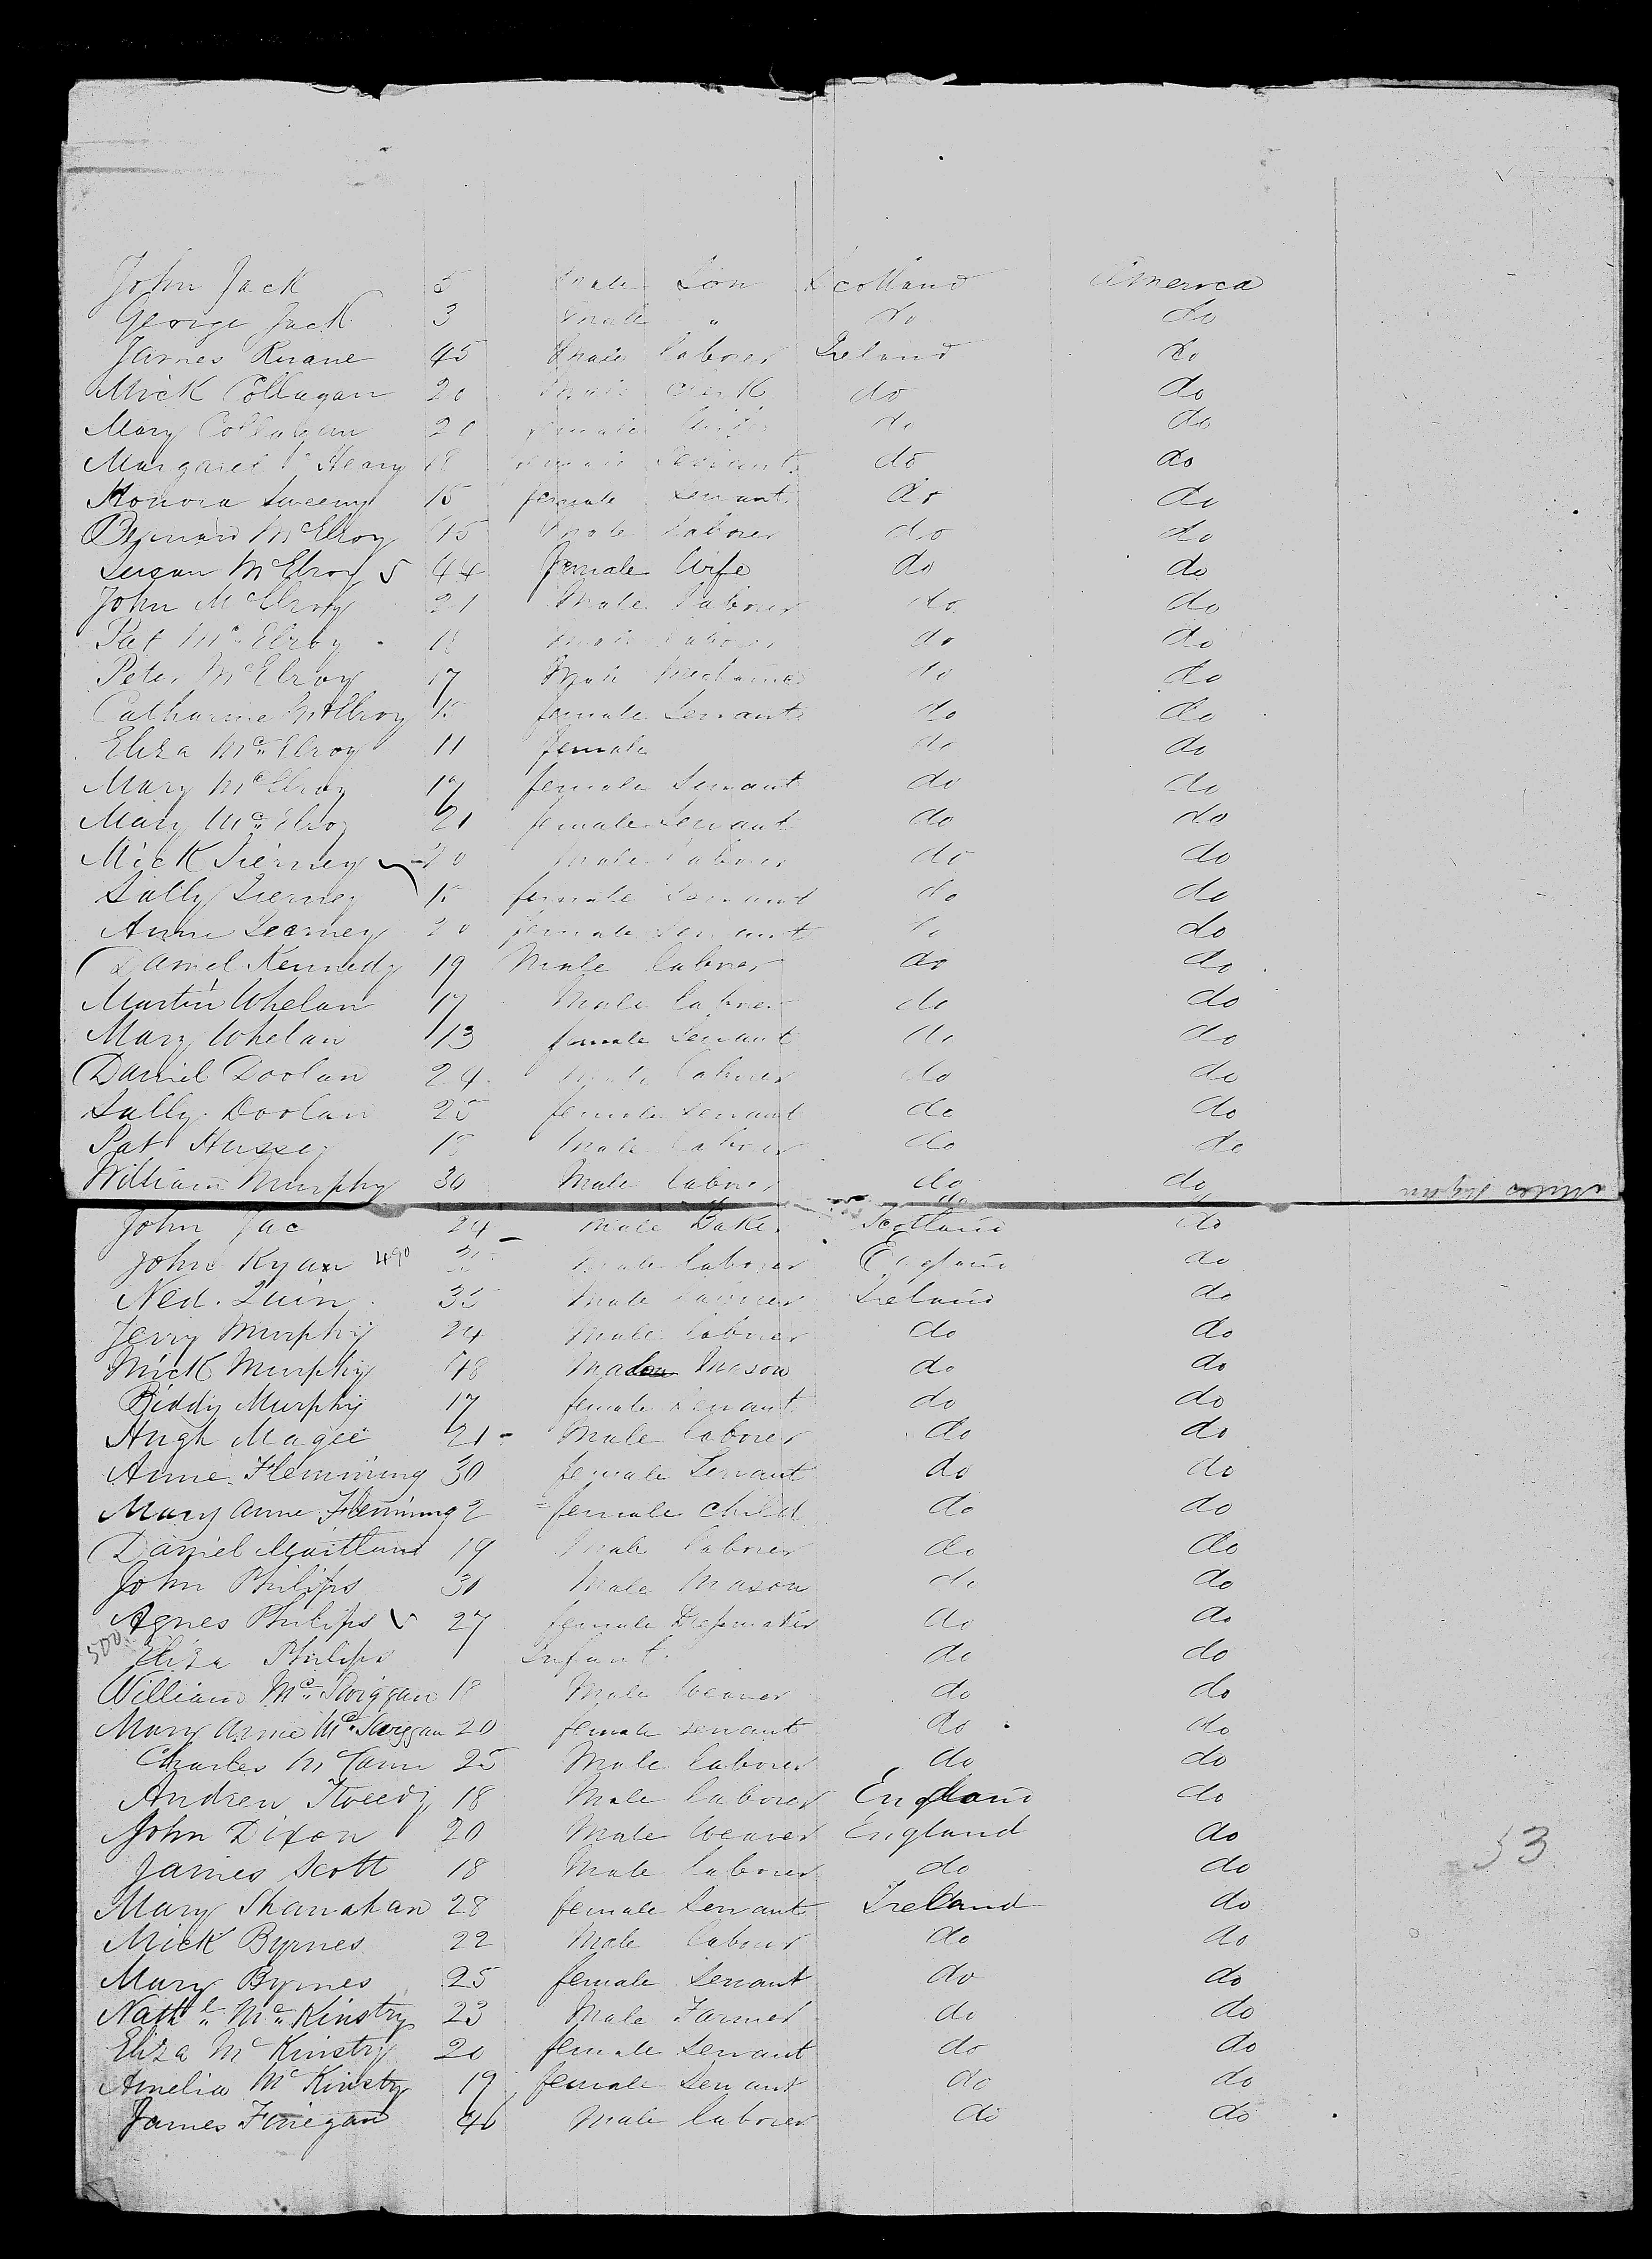 John Jack 5 Male Son Scotland America
George Jack 3 Male " do do
James Ruane 45 Male laborer Ireland do
Mick Collagan 20 Male Clerk do do
Mary Collagan 20 female Wife do do
Margaret Heary 18 female Servant do do
Honora Sweeny 15 female Servant do do
Bernard McElroy 45 Male laborer do do
Susan McElroy 44 female Wife do do
John McElroy 21 Male laborer do do
Pat McElroy 18 Male laborer do do
Peter McElroy 17 Male Mechanic do do
Catharine McElroy 15 female Servant do do
Eliza McElroy 11 female do do
Mary McElroy 17 female Servant do do
Mary McElroy 21 female Servant do do
Mick Tierney 20 Male laborer do do
Sally Tierney 15 female Servant do do
Anne Tierney 20 female Servant do do
Daniel Kennedy 19 Male laborer do do
Martin Whelan 17 Male laborer do do
Mary Whelan 13 female Servant do do
Daniel Doolan 24 Male laborer do do
Sally Doolan 25 female Servant do do
Pat Hussey Male laborer do do
William Murphy 30 Male laborer do do
do
John Jac 24 Male Baker Scotland do
John Ryan 490 Male laborer England do
Ned. Quin 35 Male laborer Ireland do
Jerry Murphy 24 Male laborer do do
Mick Murphy 48 Male Mason do do
Biddy Murphy 17 female Servant do do
Hugh Magee 21 Male laborer do do
Anne Flemming 30 female Servant do do
Mary Anne Flemming 2 female child do do
Daniel Maitland 19 Male laborer do do
John Philips 31 Male Mason do do
Agnes Philips 27 female Dressmaker do do
500 Eliza Philips Infant do do
William Mc Swiggan 18 Male Weaver do do
Mary Anne Mc Swiggan 20 female servant do do
Charles McCann 25 Male laborer do do
Andrew Tweedy 18 Male laborer England do
John Dixon 20 Male Weaver England do
James Scott 18 Male laborer do do
Mary Shanahan 28 female Servant Ireland do
Mick Byrnes 22 Male labour do do
Mary Byrnes 25 female Servant do do
Nathl McKinstry 23 Male Farmer do do
Eliza McKinstry 20 female Servant do do
Amelia McKinsty 19 female Servant do do
James Finegan 40 Male laborer do do
53